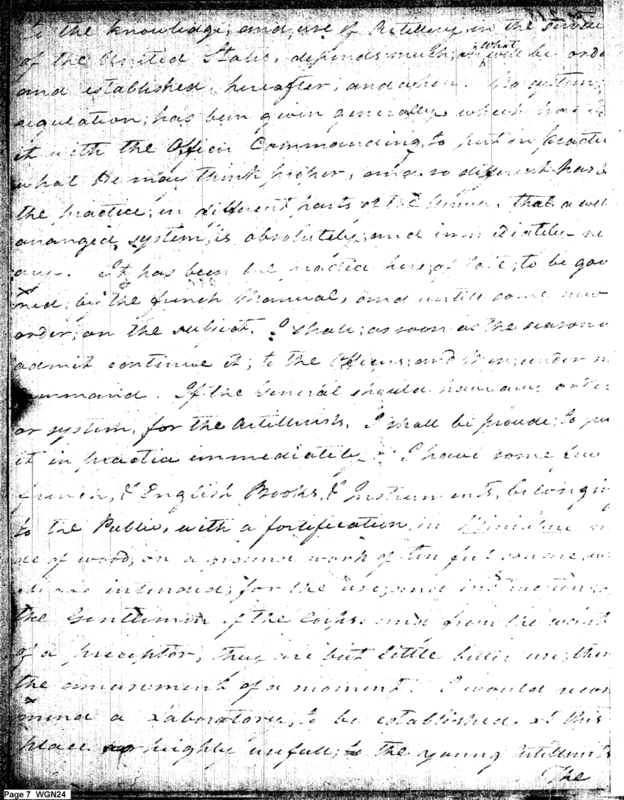 to the knowledge; and use of Artillery, in the
of the United States, depends much; on What will be
and established, hereafter; and when. No
regulation; has been given generally, which has
it with the Officer Commanding, to put in
what He may think proper, and so different has
the practice; in different parts of the that a well
arranged, system, is absolutely, and immediately ne
It has been the practice here; of late; to be gov
ned; by the french Manual, and untill some new
order; on the subject. I shall; as soon as the season
admit continue it; to the Officers; and Men; under m
ommand. If the General should have any
or system, for the Artillerists, I shall be proude; to pu
it in practice immediately. I have some few
french, & English Books, & Instruments, belonging
to the Public, with a fortification, in Miniature m
de of wood; on a ground work of ten feet square, w
are intended; for the use; and instruction;
the Gentlemen of the Corps. and from the want
of a preceptor, they are but little
the amusement of a moment. I would recom
mend a Laboratory, to be established. at this
place highly usefull; to the young Artillerists
The
Page 7 WGN24